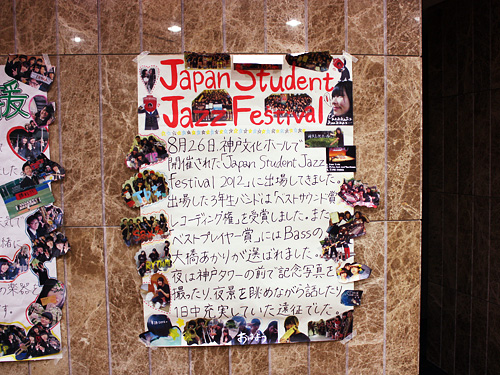 Japan Student
Jazz Festival
8月26日、神戸文化ホールで
開催された「Japan Student Jazz
Festival 2012」に出場してきました。
出場した3年生バンドは「ベストサウンド賞
レコーディング権」を受賞しました。また
「ベストプレイヤー賞」にはBassの
大橋あかりが選ばれました。
夜は神戸タワーの前で記念写真を
撮ったり、夜景を眺めながら話したり
1日中充実していた遠征でした。
援